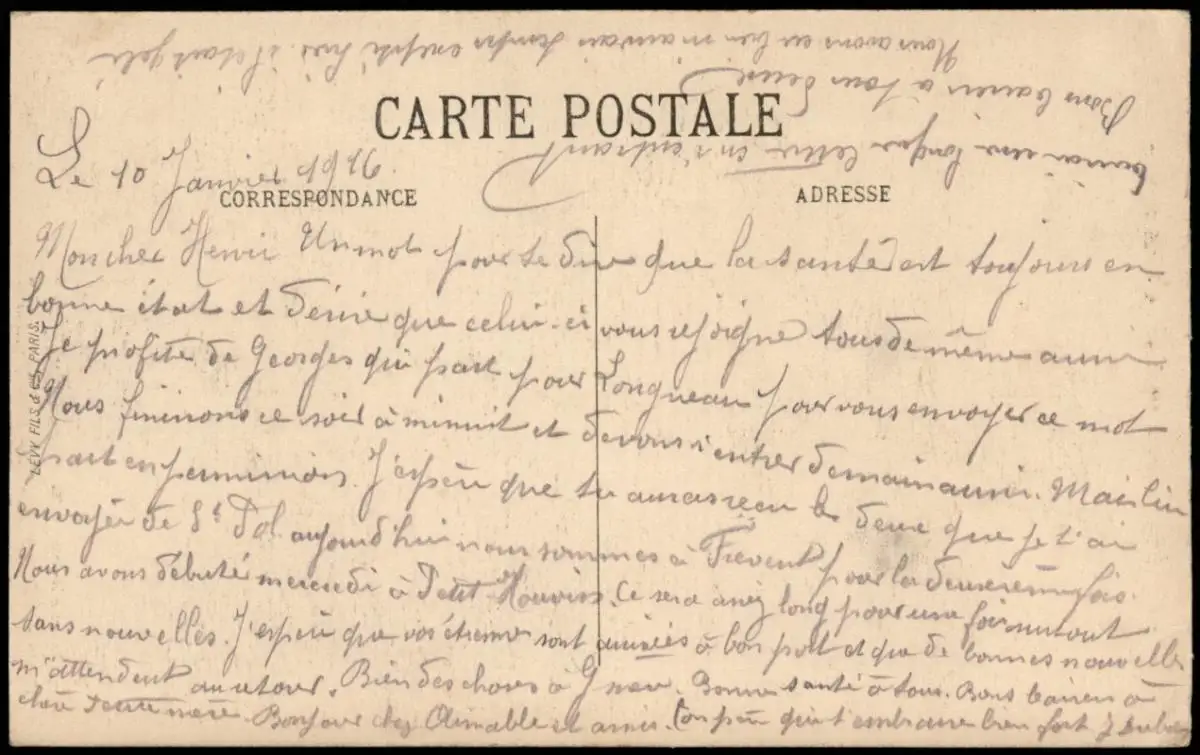 Nous avons eu bien mauvais temps excepté hier il était gelé
Bons baisers à tous deux
une longue lettre en rentrant
CARTE POSTALE
Le 10 Janvier 1916.
CORRESPONDANCE
ADRESSE
Mon cher Henri Un mot pour te dire que la santé est toujours en
bonne état et désire que celui-ci vous rejoigne tous de même aussi
Je profite de Georges qui part pour Longueau pour vous envoyer ce mot
Nous finissons ce soir à minuit et devons rentrer demain aussi.
part en permission. J'espère que tu auras reçu les deux que je t'ai
envoyés de St Pol. aujourd'hui nous sommes à Frévent pour la deuxième fois.
Nous avons débuté mercredi à Petit Houvin. Ce sera assez long pour une fois surtout
sans nouvelles. J'espère que vos étrennes sont arrivées à bon port et que de bonnes nouvelles
m'attendent au retour. Bien des choses à Bonne santé à tous. Bons baisers à
chère Petite mère. Bonjour chez Aimable et amis. Ton père qui t'embrasse bien fort J
LÉVY FILS & Cie, PARIS.